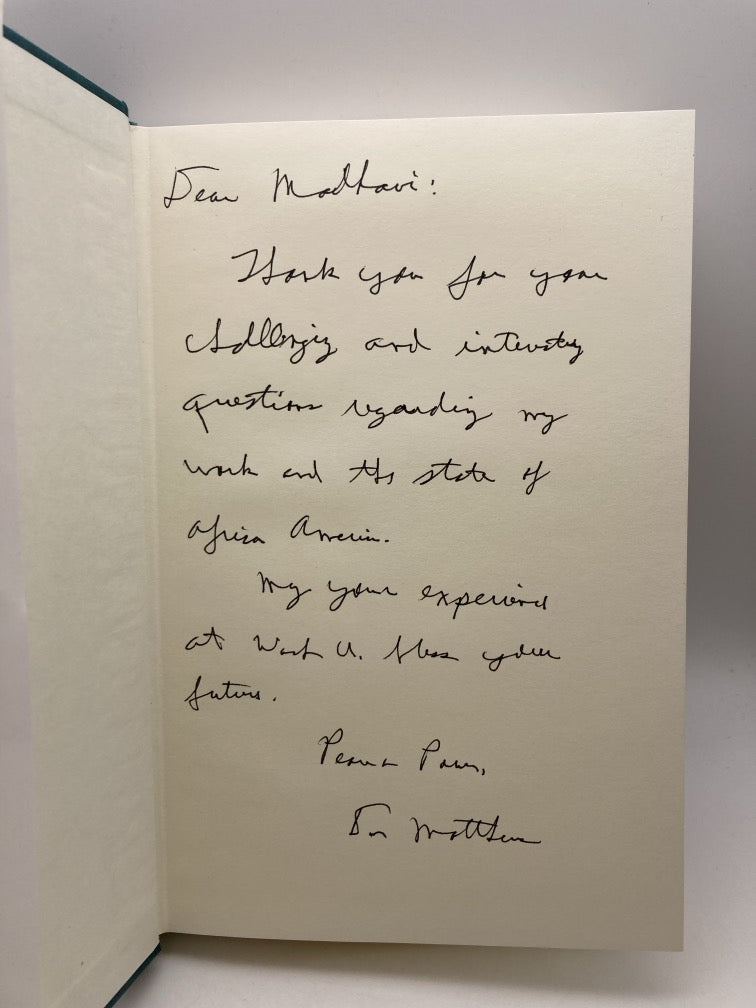 Dear Madhavi:
Thank you for your
challenging and interesting
questions regarding my
work and the state of
Africa America.
May your experience
at Wash U. bless your
future.
Peace & Power,
Matthew